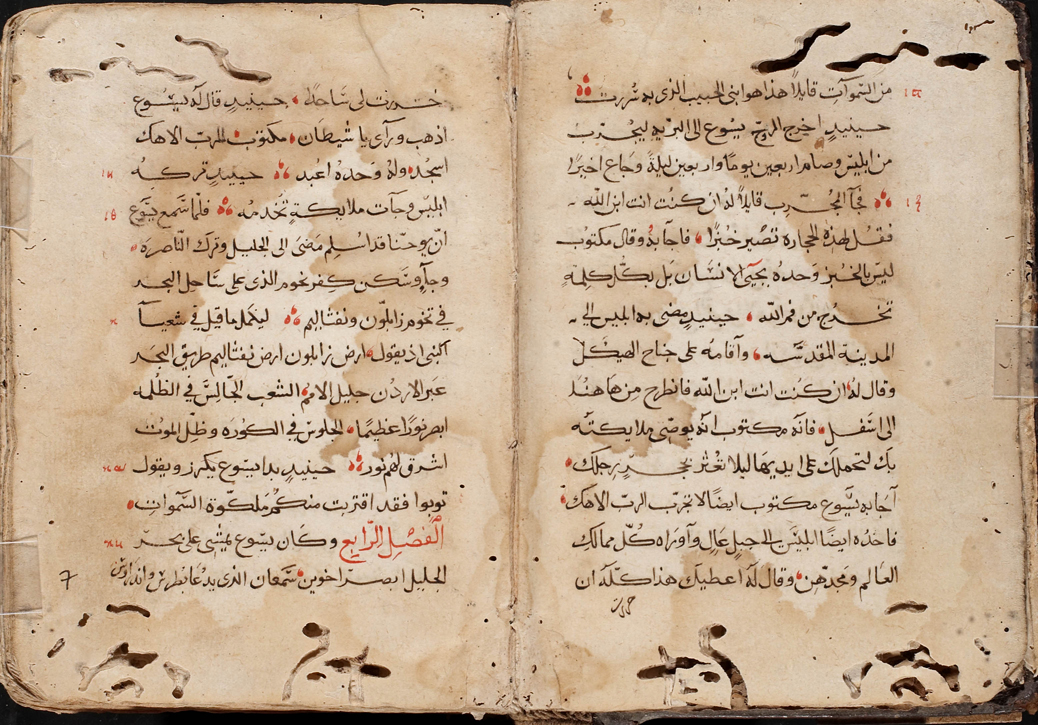 من السموات قايلاً هذا هو ابنى الحبيب الذى به سررت
حينيدٍ اخرج الروح يسوع الى البريه ليجرب
من ابليس وصام اربعين يوماً واربعين ليلةً وجاع اخيرًا
فجآ المجرب قايلاً له ان كنت انت ابن الله
فقل لهذه الحجاره تصير خبزًا فاجابهُ وقال مكتوب
ليس بالخبز وحدهُ يحيى الانسان بل بكل كلمةٍ
تخرج من فم الله حينيدٍ مضى به ابليس الى
المدينة المقدسه وآقامه على جناح الهيكل
وقال لهُ ان كنت انت ابن الله فانطرح من هاهنا
الى اسفل فانه مكتوب انه يوصى ملايكته
بك لتحملك على ايديها ليلا تعثر بحجر رجلك
آجابه يسوع مكتوب ايضًا لا تجرب الرب الاهك
فاخذه ايضًا ابليس الى جبل عالٍ وآوراه كل ممالك
العالم ومجدهن وقال لهُ اعطيك هذا كله ان
خررت
خررت لى ساجدًا حينيدٍ قال له يسوع
اذهب ورآى يا شيطان مكتوب للرب الاهك
اسجد وله وحدهُ اعبد حينيدٍ تركهُ
ابليس وجآت ملايكة تخدمه فلما سمع يسوع
ان يوحنا قد اسلم مضى الى الجليل وترك الناصره
وجآ وسكن كفرنحوم الذى على ساحل البحر
فى تخوم زابلون ونفتاليم ليكمل ما قيل فى شعيا
النبى اذ يقول ارض زابلون ارض نفتاليم طريق البحر
عبر الاردن جليل الامم الشعب الجالس فى الظلمه
ابصر نورًا عظيمًا الجلوس فى الكوره وظل الموت
اشرق لهم نور حينيدٍ بدا يسوع يكرز ويقول
توبوا فقد اقتربت منكم ملكوة السموات
الفصل الرابع وكان يسوع يمشى على بحر
الجليل ابصر اخوين سمعان الذى يدعا بطرس واندراوس
7